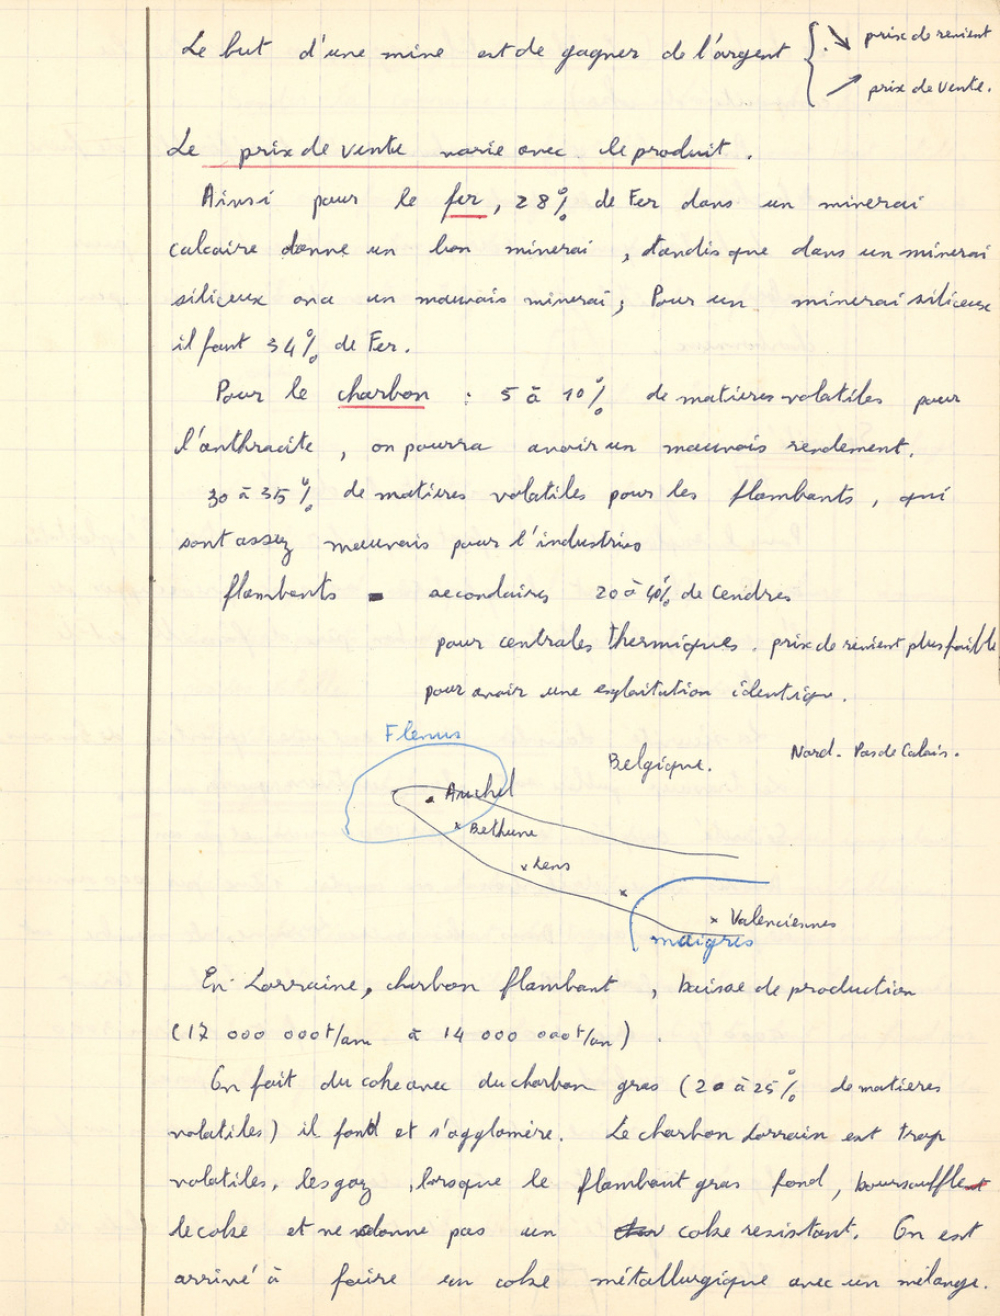 Le but d'une mine est de gagner de l'argent { ↘ prix de revient
↗ prix de vente.
Le prix de vente varie avec le produit.
Ainsi pour le fer, 28% de Fer dans un minerai
calcaire donne un bon minerai, tandis que dans un minerai
siliceux on a un mauvais minerai; Pour un minerai siliceux
il faut 34% de Fer.
Pour le charbon : 5 à 10% de matières volatiles pour
l'anthracite, on pourra avoir un mauvais rendement.
30 à 35% de matières volatiles pour les flambants, qui
sont assez mauvais pour l'industries
flambants - secondaires 20 à 40% de Cendres
pour centrales thermiques. prix de revient plus faible
pour avoir une exploitation identique.
Flenus
Belgique.
Nord. Pas de Calais.
Auchel
x Bethune
x Lens
x
x Valenciennes
maigres
En Lorraine, charbon flambant, baisse de production
(17 000 000t/an à 14 000 000t/an).
On fait du coke avec du charbon gras (20 à 25% de matières
volatiles) il fond et s'agglomère. Le charbon Lorrain est trop
volatiles, les gaz, lorsque le flambant gras fond, boursoufflent
le coke et ne donne pas un coke resistant. On est
arrivé à faire un coke métallurgique avec un mélange.